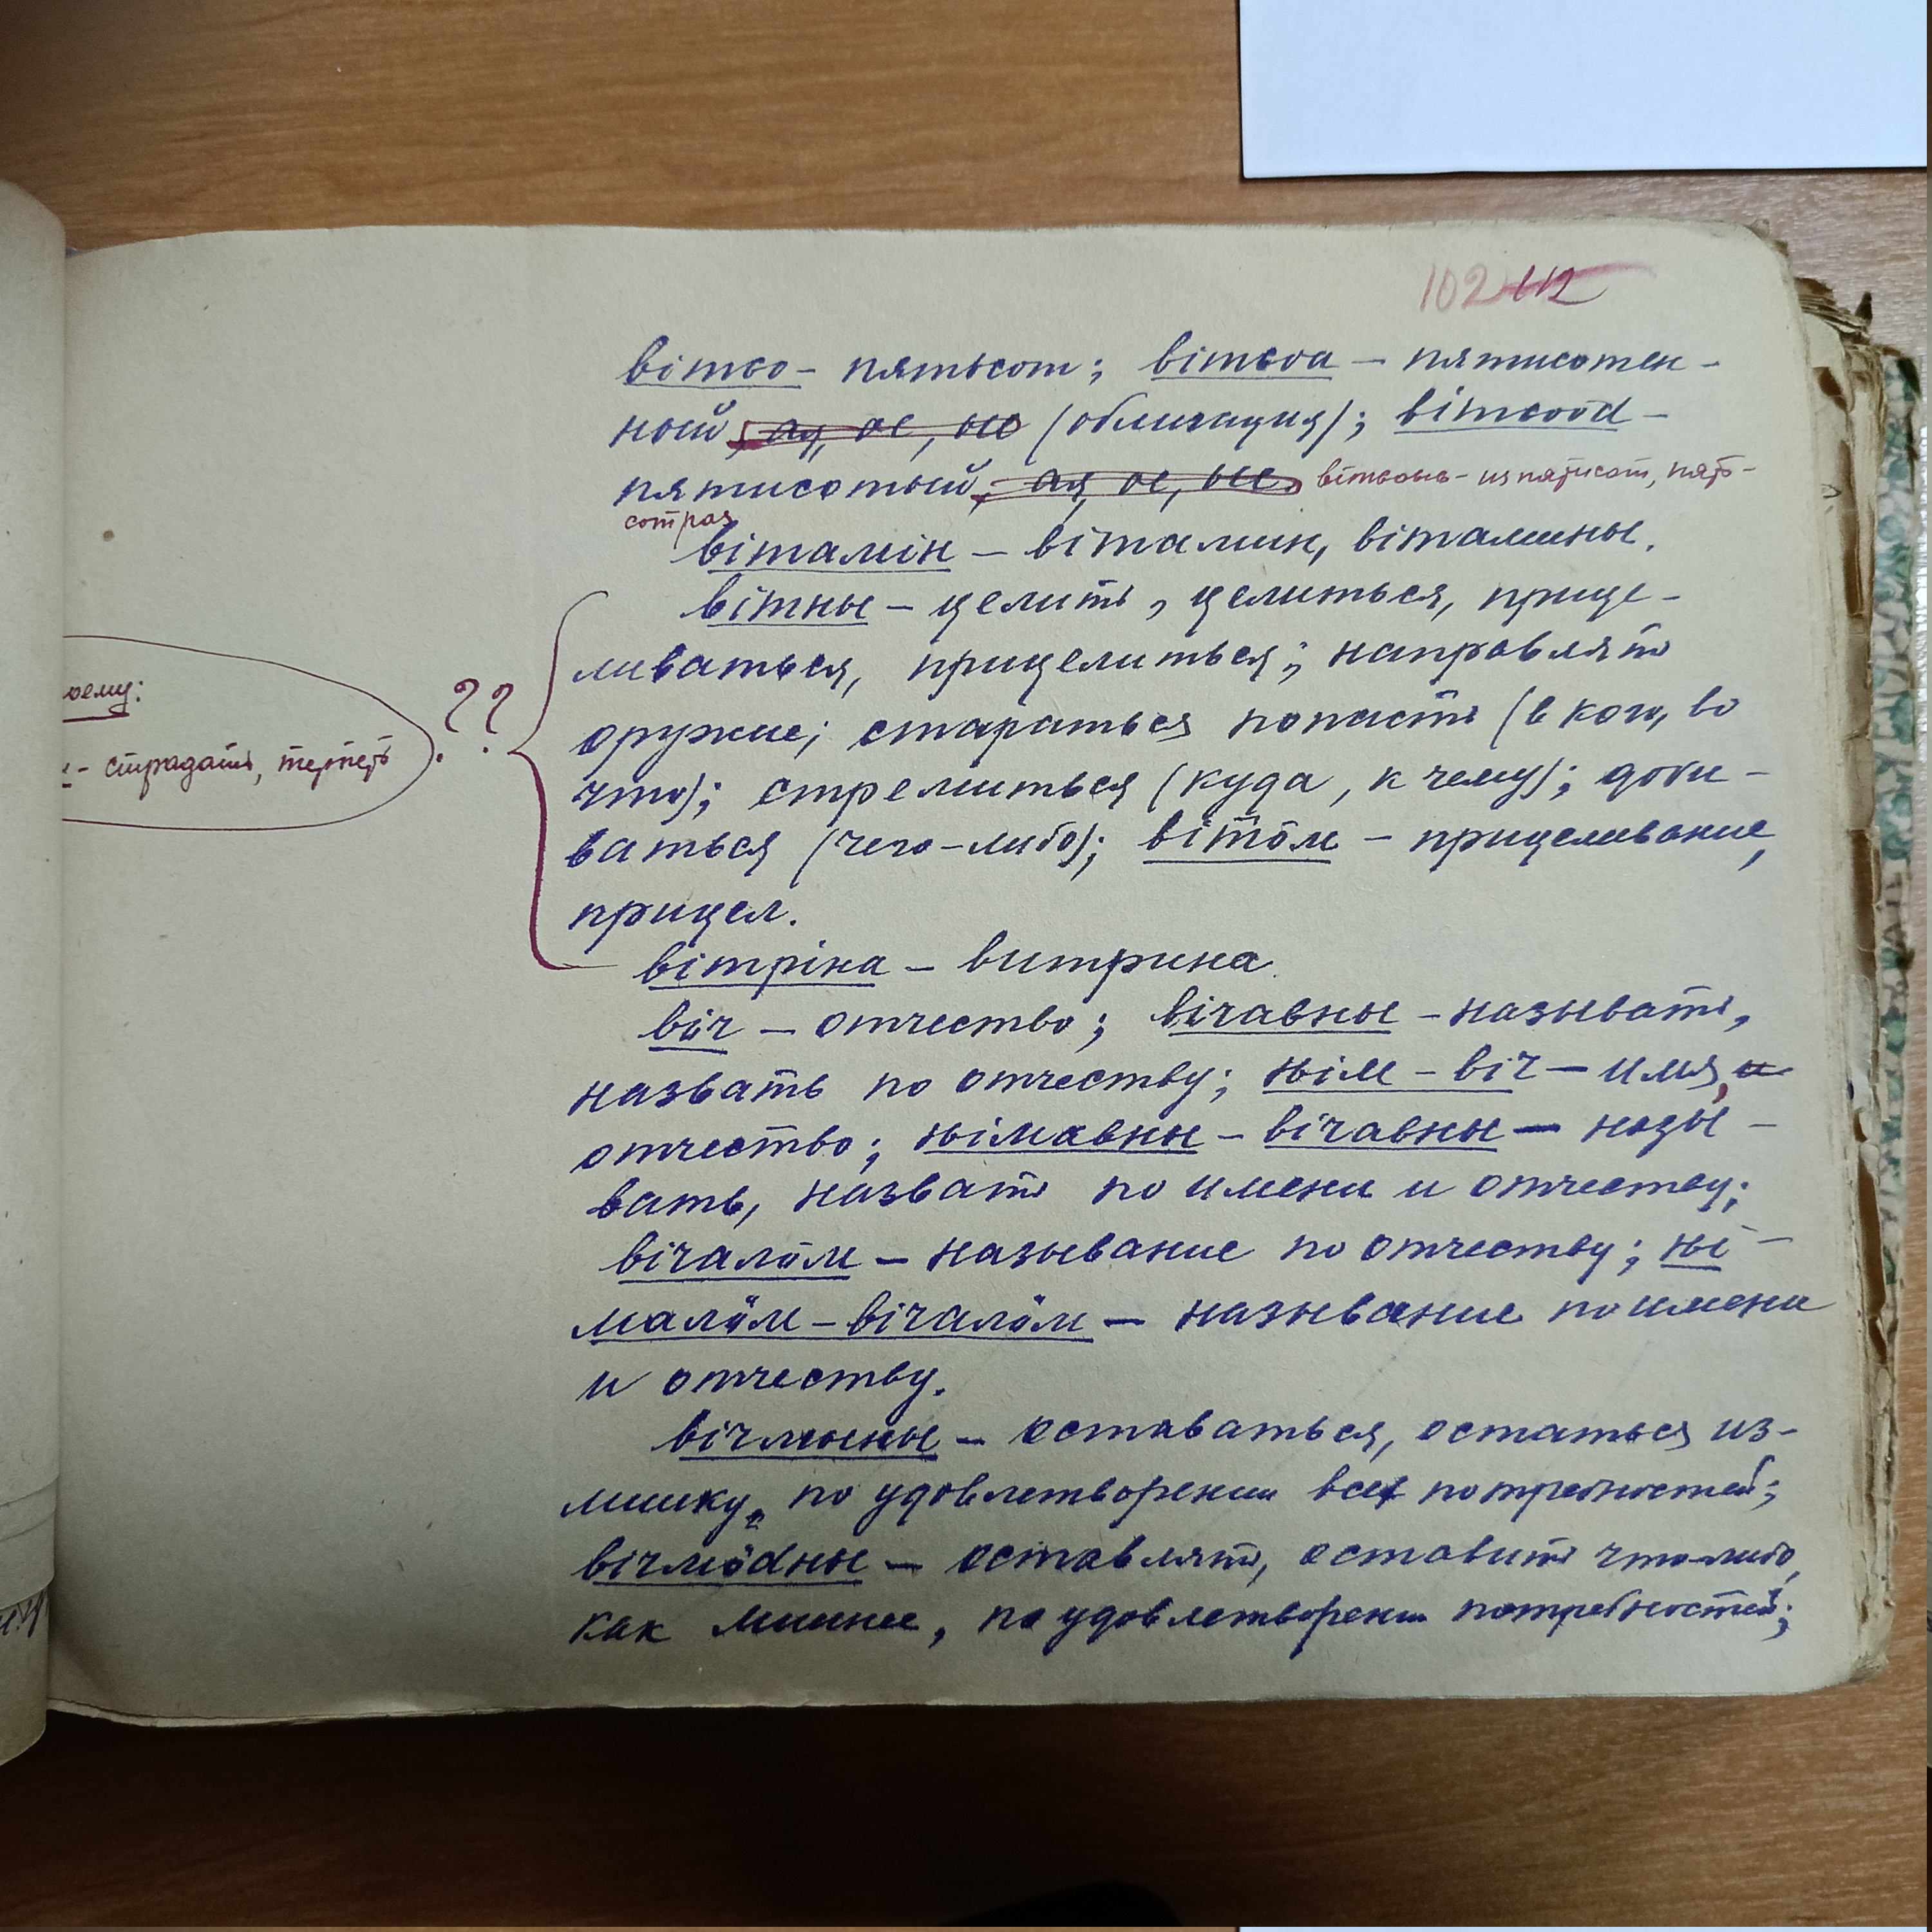 102 112
вітсо - пятьсот; вітсоа - пятисотен-
ный, ая, ое, ые (облигация); вітсоӧd -
пятисотый, ая, ое, ые. вітсоысь - из пятисот, пять-
сот раз
вітамін - вітамин, вітамины.
вітны - целить, целиться, прице-
ливаться, прицелиться; направлять
оружие; стараться попасть (в кого, во
что); стремиться (куда, к чему); доби-
ваться (чего-либо); вітӧм - прицеливание,
прицел.
оему:
- страдать, терпеть
??
вітріна - витрина.
віч - отчество; вічавны - называть,
назвать по отчеству; ним - віч - имя, и
отчество; німавны - вічавны - назы-
вать, назвать по имени и отчеству;
вічалӧм - называние по отчеству; ні-
малӧм - вічалӧм - называние по имени
и отчеству.
вічмыны - оставаться, остаться из-
лишку, по удовлетворении всех потребностей;
вічмӧdны - оставлять, оставить что-либо,
как лишнее, по удовлетворении потребностей;